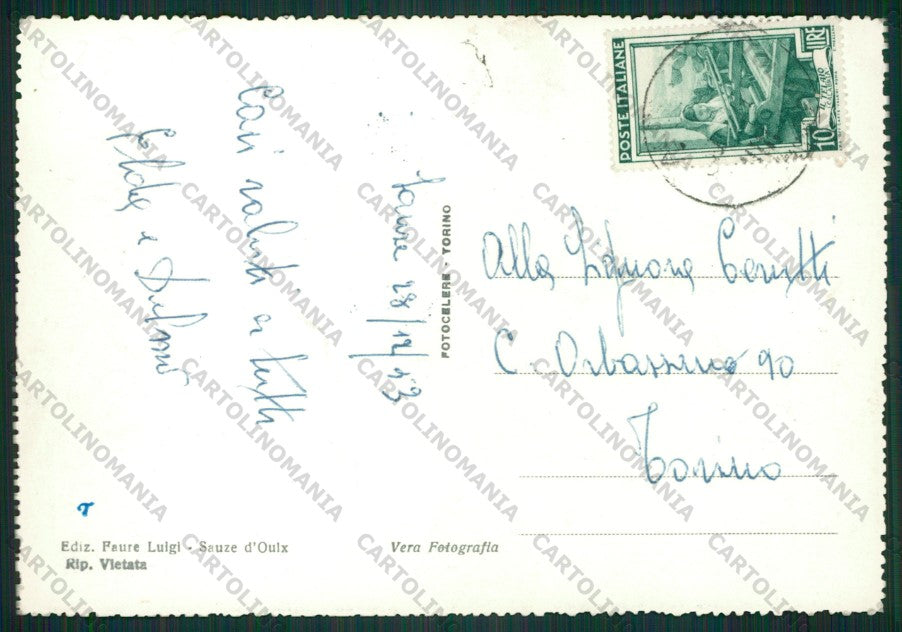 Sauze 28/12/53
Cari saluti a tutti
Elda e
Alla Signora Cerutti
C. Orbassano 90
Torino
POSTE ITALIANE
LIRE
10
FOTOCELERE - TORINO
Ediz. Faure Luigi - Sauze d'Oulx
Rip. Vietata
Vera Fotografia
CARTOLINOMANIA